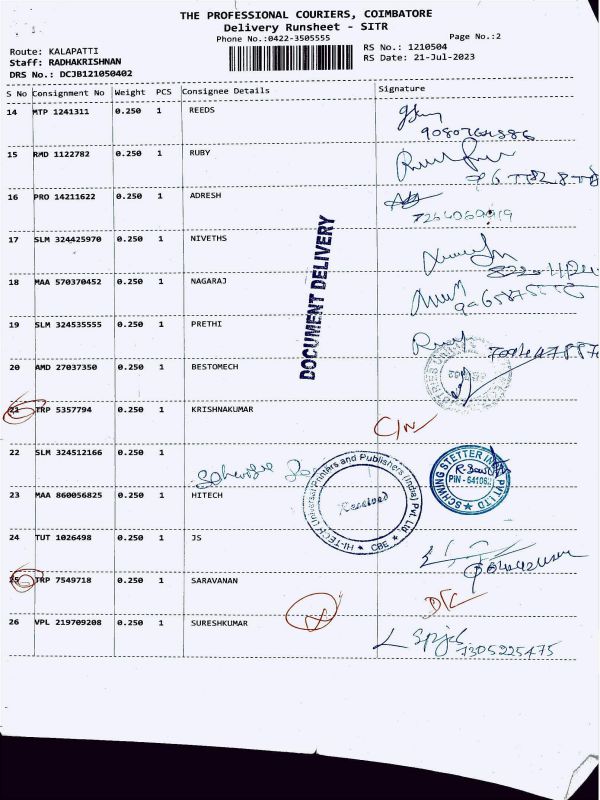 THE PROFESSIONAL COURIERS, COIMBATORE
Delivery Runsheet - SITR
Phone No.:0422-3505555
Page No.:2
Route: KALAPATTI
RS No.: 1210504
Staff: RADHAKRISHNAN
RS Date: 21-Jul-2023
DRS No.: DCJB121050402
S No Consignment No Weight PCS Consignee Details Signature
14 MTP 1241311 0.250 1 REEDS
15 RMD 1122782 0.250 1 RUBY
16 PRO 14211622 0.250 1 ADRESH
17 SLM 324425970 0.250 1 NIVETHS
18 MAA 570370452 0.250 1 NAGARAJ
19 SLM 324535555 0.250 1 PRETHI
20 AMD 27037350 0.250 1 BESTOMECH
21 TRP 5357794 0.250 1 KRISHNAKUMAR
C/N
22 SLM 324512166 0.250 1
23 MAA 860056825 0.250 1 HITECH
24 TUT 1026498 0.250 1 JS
25 TRP 7549718 0.250 1 SARAVANAN
D/C
26 VPL 219709208 0.250 1 SURESHKUMAR
7305225475
DOCUMENT DELIVERY
HI-TECH (Universal Printers and Publishers (India) Pvt. Ltd
CBE
Received
SCHWING STETTER
PVT LTD